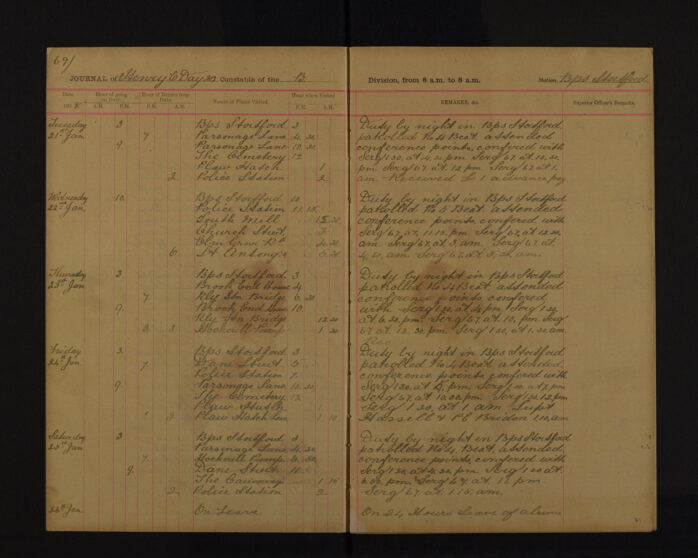 69/
JOURNAL of Henry C Day Constable of the B Division, from 8 a.m. to 8 a.m. Station Bps Stortford
Date. Hour of going on Duty. Hour of Return from Duty. Names of Places Visited. Hour when Visited REMARKS, &c. Superior Officer's Remarks.
A.M. P.M. P.M. A.M. P.M. A.M.
Tuesday 3 Bps Stortford 3 Duty by night in Bps Stortford
21st Jan 7 Parsonage Lane 4.20 patrolled No 4 Beat attended
9 Parsonage Lane 10.20 conference points, confered with
The Cemetery 12 Serg 120, at 4.20 pm Serg 67, at 10.20
Plaw Hatch 1 pm Serg 67, at 12 pm Serg 67 at 1
2 Police Station 2 am Received £1 advance pay
Wednesday 10 Bps Stortford 10 Duty by night in Bps Stortford
22nd Jan Police Station 11.10 patrolled No 5 Beat attended
South Mill conference points, confered with
Church Street 3 Serg 67, at 11.10 pm Serg 67, at
Elm Grove Rd am Serg 67, at 3, am Serg 67, at
6 St Antony's am Serg 67, at
Thursday 3 Bps Stortford 3 Duty by night in Bps Stortford
23rd Jan Brook End House 4 patrolled No 4 Beat attended
7 Rly Stn Bridge 6.30 conference points, confered
9 Brook End Lane 10 with Serg 120, at 4, pm Serg 120
Rly Stn Bridge 12.30 at 6.30 pm Serg 67, at 10, pm Serg
Hockerill Pump 1 30 67 at 12.30 pm Serg 120, at 1.30 am
Friday 3 Bps Stortford 3 Duty by night in Bps Stortford
24th Jan 7 Dane Street 5 patrolled No 4 Beat attended
Police Station 7 conference points, confered with
9 Parsonage Lane 10.20 Serg 120, at 5, pm Serg 120 at 7 pm
The Cemetery 12 Serg 67, at 10.20 pm Serg 120 12 pm
Plaw Hatch 1 Serg 120, at 1 am Supt
2 Plaw Hatch Lane 1 10 Hassell & PC Briden 1.10 am
Saturday 3 Bps Stortford 3 Duty by night in Bps Stortford
25th Jan Parsonage Lane 4.20 patrolled No 4 Beat attended
7 Hockerill Pump 6.30 conference points, confered with
9 Dane Street 11 Serg 120 at 4.20 pm Serg 120 at
The Causeway 1 15 6.30 pm Serg 67 at 11 pm
2 Police Station 2 Serg 67, at 1.15 am
26th Jan On Leave On 24 Hours Leave of absence